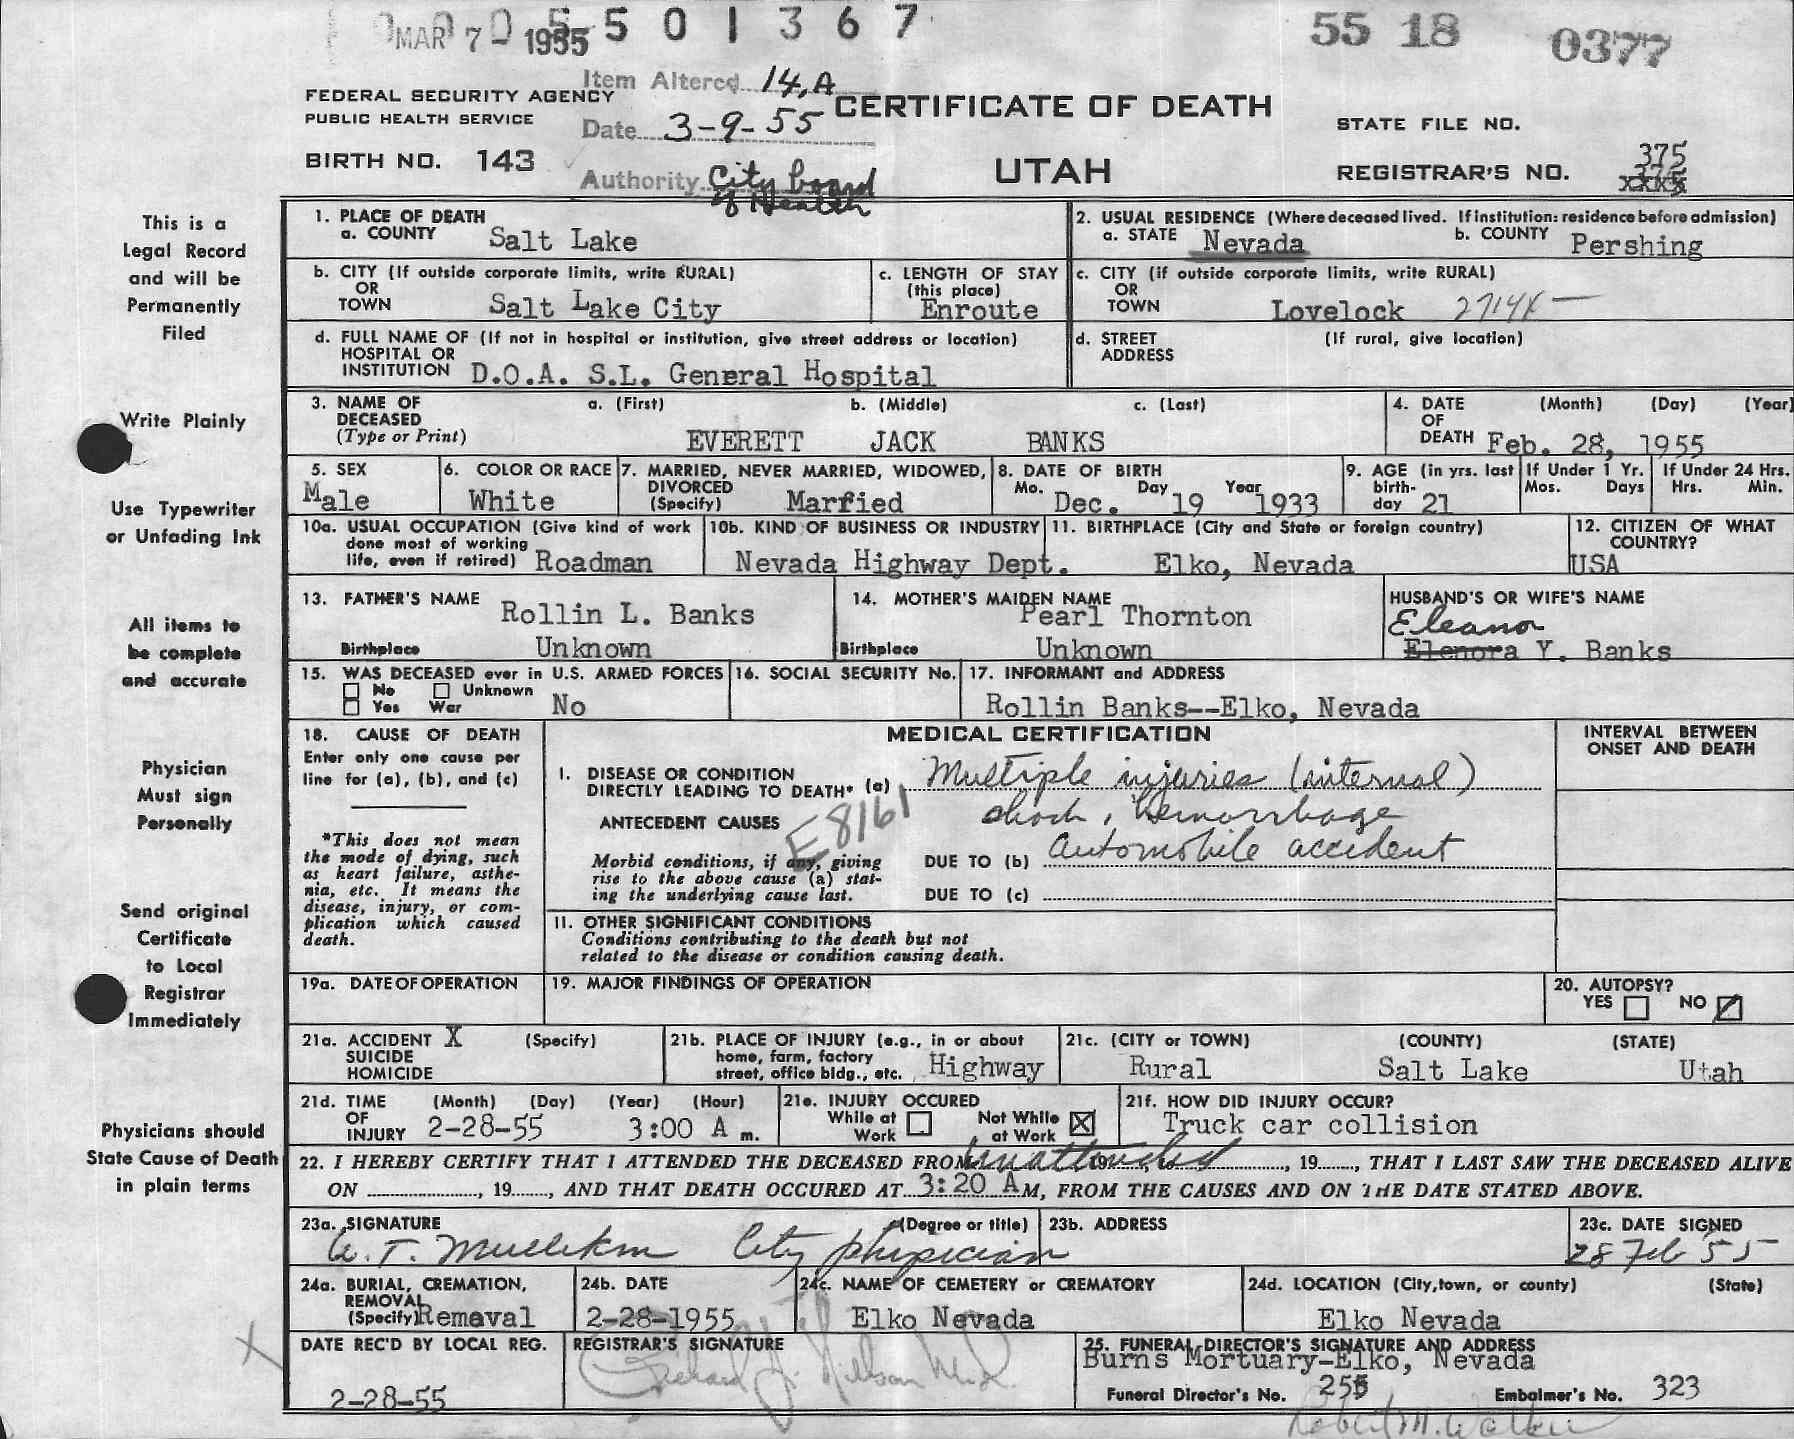 MAR 7 - 1955 5 5 0 1 3 6 7
55 18 0377
Item Altered 14,A
FEDERAL SECURITY AGENCY
PUBLIC HEALTH SERVICE
Date 3-9-55
CERTIFICATE OF DEATH
STATE FILE NO.
BIRTH NO. 143
Authority City board of Health
UTAH
REGISTRAR'S NO. 375
This is a
Legal Record
and will be
Permanently
Filed
Write Plainly
Use Typewriter
or Unfading Ink
All items to
be complete
and accurate
Physician
Must sign
Personally
Send original
Certificate
to Local
Registrar
Immediately
Physicians should
State Cause of Death
in plain terms
1. PLACE OF DEATH
a. COUNTY Salt Lake
2. USUAL RESIDENCE (Where deceased lived. If institution: residence before admission)
a. STATE Nevada b. COUNTY Pershing
b. CITY (If outside corporate limits, write RURAL)
OR
TOWN Salt Lake City
c. LENGTH OF STAY
(this place)
Enroute
c. CITY (if outside corporate limits, write RURAL)
OR
TOWN Lovelock 2714X
d. FULL NAME OF (If not in hospital or institution, give street address or location)
HOSPITAL OR
INSTITUTION D.O.A. S.L. General Hospital
d. STREET (If rural, give location)
ADDRESS
3. NAME OF a. (First) b. (Middle) c. (Last)
DECEASED
(Type or Print) EVERETT JACK BANKS
4. DATE (Month) (Day) (Year)
OF
DEATH Feb. 28, 1955
5. SEX
Male
6. COLOR OR RACE
White
7. MARRIED, NEVER MARRIED, WIDOWED,
DIVORCED
(Specify) Married
8. DATE OF BIRTH
Mo. Day Year
Dec. 19 1933
9. AGE (in yrs. last
birth-
day 21
If Under 1 Yr.
Mos. Days
If Under 24 Hrs.
Hrs. Min.
10a. USUAL OCCUPATION (Give kind of work
done most of working
life, even if retired) Roadman
10b. KIND OF BUSINESS OR INDUSTRY
Nevada Highway Dept.
11. BIRTHPLACE (City and State or foreign country)
Elko, Nevada
12. CITIZEN OF WHAT
COUNTRY?
USA
13. FATHER'S NAME Rollin L. Banks
Birthplace Unknown
14. MOTHER'S MAIDEN NAME
Pearl Thornton
Birthplace Unknown
HUSBAND'S OR WIFE'S NAME
Eleanor
Elenora Y. Banks
15. WAS DECEASED ever in U.S. ARMED FORCES
No Unknown
Yes War No
16. SOCIAL SECURITY No.
17. INFORMANT and ADDRESS
Rollin Banks--Elko, Nevada
18. CAUSE OF DEATH
Enter only one cause per
line for (a), (b), and (c)
*This does not mean
the mode of dying, such
as heart failure, asthe-
nia, etc. It means the
disease, injury, or com-
plication which caused
death.
MEDICAL CERTIFICATION
INTERVAL BETWEEN
ONSET AND DEATH
I. DISEASE OR CONDITION
DIRECTLY LEADING TO DEATH* (a) Multiple injuries (internal)
shock, hemorrhage
ANTECEDENT CAUSES
E8161
Morbid conditions, if any, giving
rise to the above cause (a) stat-
ing the underlying cause last.
DUE TO (b) automobile accident
DUE TO (c)
II. OTHER SIGNIFICANT CONDITIONS
Conditions contributing to the death but not
related to the disease or condition causing death.
19a. DATE OF OPERATION
19. MAJOR FINDINGS OF OPERATION
20. AUTOPSY?
YES NO
21a. ACCIDENT X (Specify)
SUICIDE
HOMICIDE
21b. PLACE OF INJURY (e.g., in or about
home, farm, factory
street, office bldg., etc. Highway
21c. (CITY or TOWN) (COUNTY) (STATE)
Rural Salt Lake Utah
21d. TIME (Month) (Day) (Year) (Hour)
OF
INJURY 2-28-55 3:00 A m.
21e. INJURY OCCURED
While at Work Not While at Work X
21f. HOW DID INJURY OCCUR?
Truck car collision
22. I HEREBY CERTIFY THAT I ATTENDED THE DECEASED FROM unattended 19 , to , 19 , THAT I LAST SAW THE DECEASED ALIVE
ON , 19 , AND THAT DEATH OCCURED AT 3:20 A M, FROM THE CAUSES AND ON THE DATE STATED ABOVE.
23a. SIGNATURE (Degree or title)
City physician
23b. ADDRESS
23c. DATE SIGNED
28 Feb 55
24a. BURIAL, CREMATION,
REMOVAL
(Specify) Remeval
24b. DATE
2-28-1955
24c. NAME OF CEMETERY or CREMATORY
Elko Nevada
24d. LOCATION (City, town, or county) (State)
Elko Nevada
X
DATE REC'D BY LOCAL REG.
2-28-55
REGISTRAR'S SIGNATURE
25. FUNERAL DIRECTOR'S SIGNATURE AND ADDRESS
Burns Mortuary-Elko, Nevada
Funeral Director's No. Embalmer's No. 323
Robert M. Walker